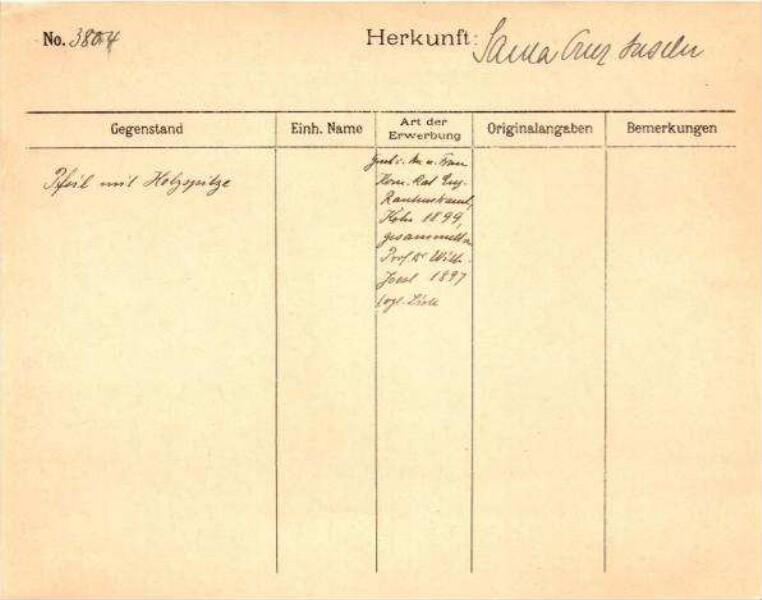 No. 3804
Herkunft: Santa Cruz Inseln
Gegenstand
Einh. Name
Art der
Erwerbung
Originalangaben
Bemerkungen
Pfeil mit Holzspitze
u. Frau
Kom. Rat Eug.
Rautenstrauch,
Köln 1899,
gesammelt v.
Prof. Dr Wilh.
Joest 1897
vgl. Liste